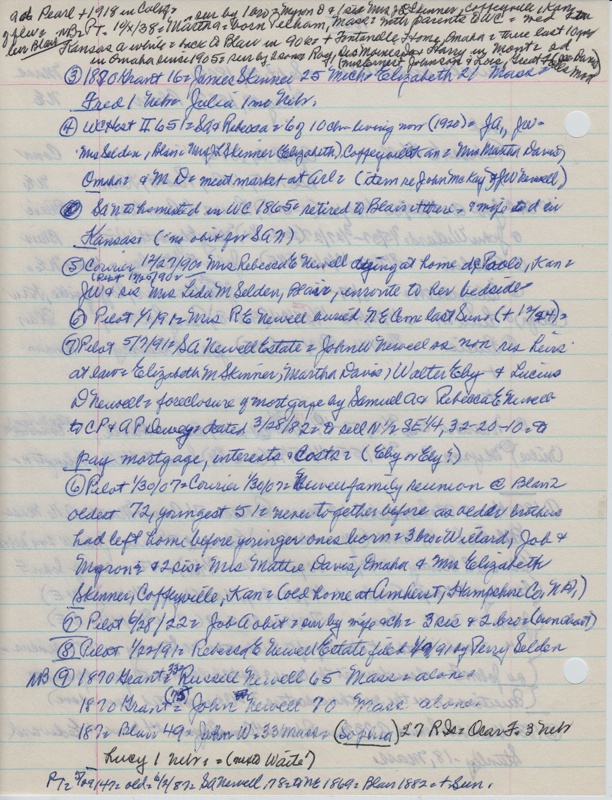 ad Pearl + 1918 in Calif = sur by 1 bro = Myron D & 1 sis Mrs J S Skinner, Coffeyville, Kans
NB PT. 14x/38 = Martha = born Pelham, Mass = with parents DWC = wed
Kansas a while = back A Blair in 90s + Fontanelle Home Omaha = there last 10 yrs
in Omaha since 1905 = sur by 2 sons Ray, Des Moines & Harry in Mont = ad
(Mrs Ernest Johnson &
③ 1880 Grant 16 = James Skinner 25 Mich = Elizabeth 21 Mass =
Fred 1 Nebr = Julia 1mo Nebr.
④ WC Hist II 651 = SA & Rebecca = 6 of 10 ch = living now (1920) = JA, JW =
Mrs Selden, Blair = Mrs J S Skinner (Elizabeth), Coffeyville Kan = Mrs Martha Davis,
Omaha & M D = meat market at Arl = (item re John McKay & JW Newell)
SAN to homestead in WC 1865 = retired to Blair = there & wife to d in
Kansas (no obit for SAN)
⑤ Courier 12/27/90 = Mrs Rebecca E Newell dying at home at Paolo, Kan =
(Pilot 12/25/90 =
JW & sis Mrs Lida M Selden, Blair, enroute to her bedside
⑥ Pilot 1/1/91 = Mrs R E Newell buried NE Cem last Sun = (+ 12/24) =
⑦ Pilot 5/7/91 = SA Newell Estate = John W Newell as non res heirs
at law = Elizabeth M Skinner, Martha Davis, Walter Eby & Lucius
D Newell = foreclosure of mortgage by Samuel A & Rebecca E Newell
to CP & AP Dewey = dated 3/28/82 = to sell N½ SE¼, 32-20-10 = to
pay mortgage, interest & costs = (Eby or Ely?)
⑥ Pilot 1/30/07 = Courier 1/30/07 = Newell family reunion @ Blair =
oldest 72, youngest 51 = never together before as older brothers
had left home before younger ones born = 3 bro = Willard, Job &
Myron & 2 sis = Mrs Mattie Davis, Omaha & Mrs Elizabeth
Skinner, Coffeyville, Kan = (old home at Amherst, Hampshire Co,
⑦ Pilot 6/28/22 = Job A obit = sur by wife & ch = 3 sis & 2 bro =
⑧ Pilot 1/22/91 = Rebecca E Newell Estate filed by Perry Selden
NB ⑨ 1870 Grant = Russell Newell 65 Mass = alone
1870 Grant = (75 John Newell 70 Mass alone
187= Blair 49 = John W = 33 mass = (Sophia) 27 R Is = Oscar F = 3 Nebr
Lucy 1 Nebr = = (nee Waite?)
PT = 147 = old = 6/2/87 = SA Newell, 78 = to NE 1869 = Blair 1882 + Sun.